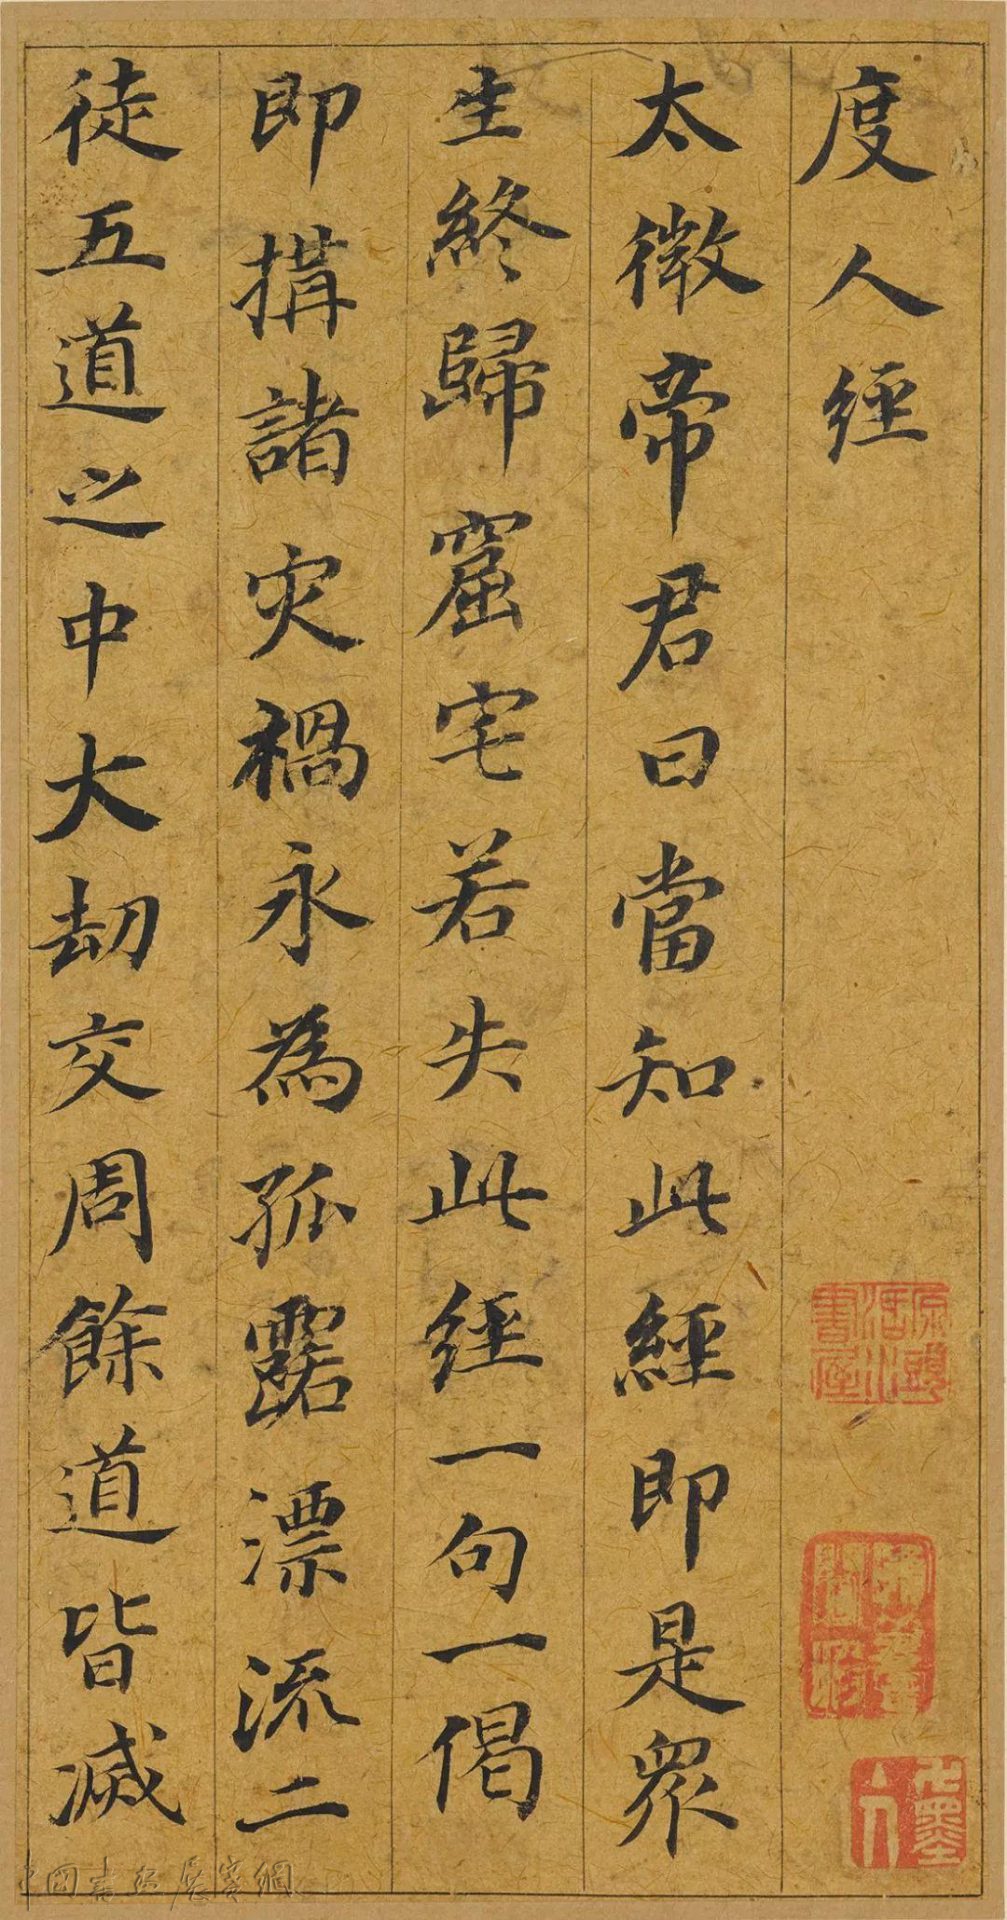 度人經
太微帝君曰當知此經即是衆
生終歸窟宅若失此經一句一偈
即搆諸灾禍永為孤露漂流二
徒五道之中大劫交周餘道皆滅